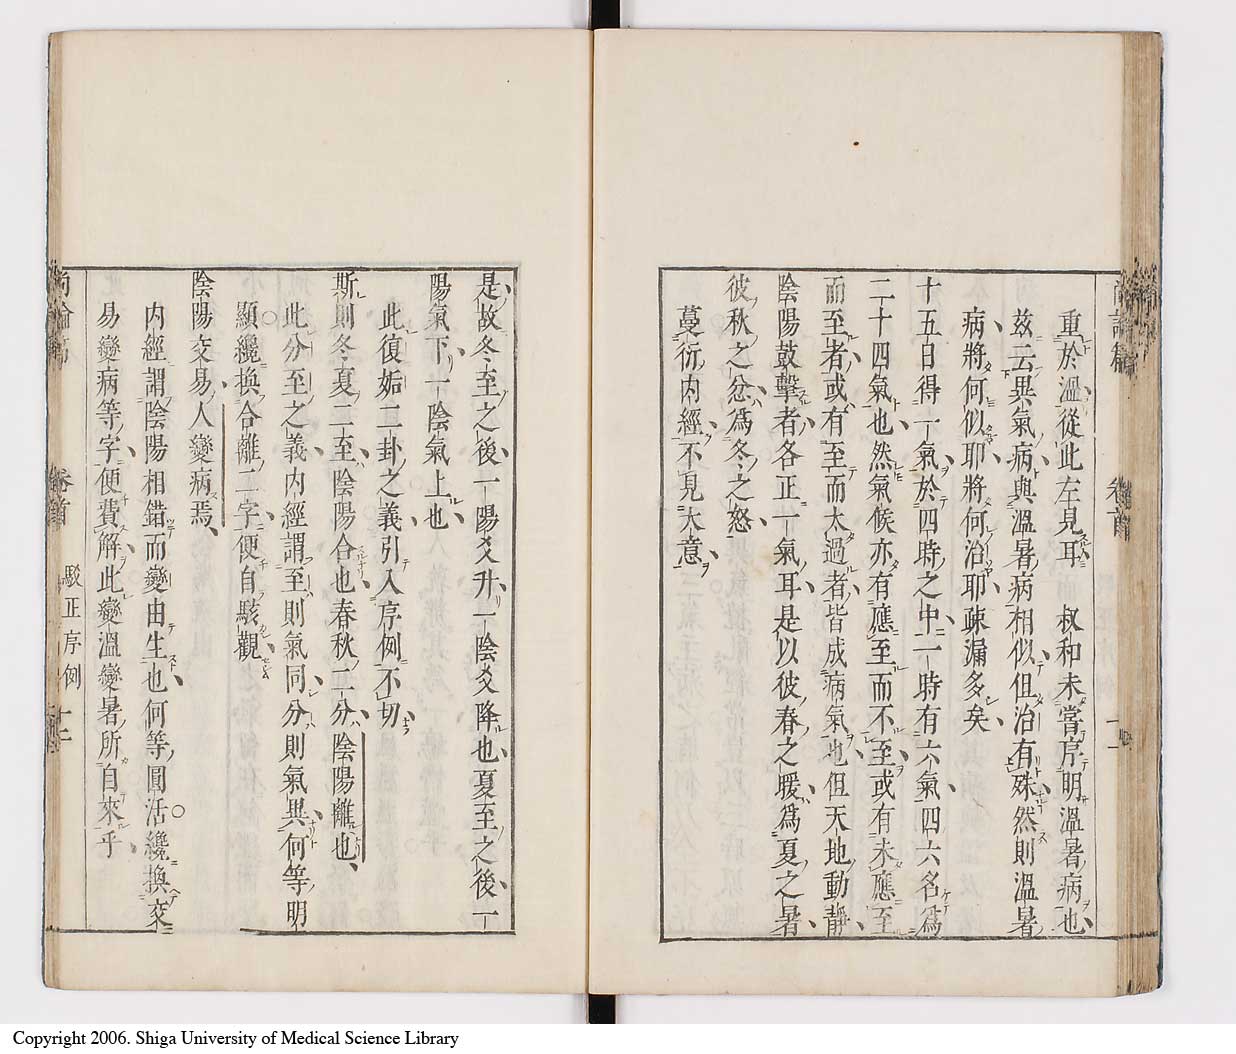 重於溫從此左見耳　叔和未嘗序明溫暑病也
茲云異氣病與溫暑病相似但治有殊然則溫暑
病將何似耶將何治耶疎漏多矣
十五日得一氣於四時之中一時有六氣四六名爲
二十四氣也然氣候亦有應至而不至或有未應至
而至者或有至而太過者皆成病氣也但天地動靜
陰陽鼓擊者各正一氣耳是以彼春之暖爲夏之暑
彼秋之忿爲冬之怒
蔓衍內經不見大意
卷首
十一
是故冬至之後一陽爻升一陰爻降也夏至之後一
陽氣下一陰氣上也
此復姤二卦之義引入序例不切
斯則冬夏二至陰陽合也春秋二分陰陽離也
此分至之義內經謂至則氣同分則氣異何等明
顯纔換合離二字便自駭觀
陰陽交易人變病焉
內經謂陰陽相錯而變由生也何等圓活纔換交
易變病等字便費解此變溫變暑所自來乎
尚論篇　卷首　駁正序例　十二
Copyright 2006. Shiga University of Medical Science Library